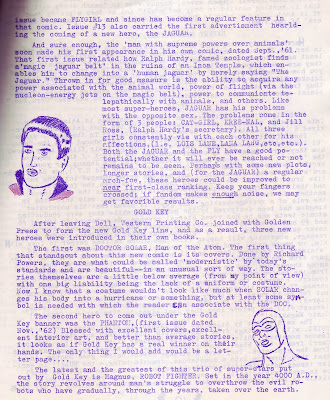 issue became FLYGIRL and since has become a regular feature in
that comic. Issue #13 also carried the first advertisment hearld-
ing the coming of a new hero, the JAGUAR.
And sure enough, the 'man with supreme powers over animals'
soon made his first appearance in his own comic, dated Sept. '61.
That first issue related how Ralph Hardy, famed zoologist finds
a "magic jaguar belt" in the ruins of an Inca Temple, which en-
ables him to change into a 'human jaguar' by merely saying "The
Jaguar." Thrown in for good measure is the ability to acquire any
power associated with the animal world, power of flight (via the
nucleon-energy jets on the magic belt), power to communicate te-
lepathically with animals, and others. Like
most super-heroes, JAGUAR has his problems
with the opposite sex. The problems come in the
form of 3 people: CAT-GIRL, KREE-NAL, and Jill
Ross, (Ralph Hardy's secretary). All three
girls constantly vie with each other for his
affections, (i.e. LOIS LANE, LANA LANG, etc, etc.).
Both the JAGUAR and the FLY have a good po-
tential; whether it will ever be reached or not
remains to be seen. Perhaps with some new plots
longer stories, and (for the JAGUAR) a regular
arch-foe, these heroes could be improved to
near first-class ranking. Keep your fingers
crossed; if fandom makes enough noise, we may
get favorible results.
GOLD KEY
After leaving Dell, Western Printing Co. joined with Golden
Press to form the new Gold Key line, and as a result, three new
heroes were introduced in their own books.
The first was DOCTOR SOLAR, Man of the Atom. The first thing
that standout about this new comic is its covers. Done by Richard
Powers, they are what could be called 'modernistic' by today's
standards and are beautiful--in an unusual sort of way. The sto-
ries themselves are a little below average (from my point of view)
with one big liability being the lack of a uniform or costume.
Now I know that a costume wouldn't look like much when SOLAR chan-
ges his body into a hurricane or something, but at least some sym-
bol is needed with which the reader can associate with the DOC.
The second hero to come out under the Gold
Key banner was the PHANTOM, (first issue dated
Nov., '62) Blessed with excellent covers, excell-
ent interior art, and better than average stories,
it looks as if Gold Key has a real winner on their
hands. The only thing I would add would be a let-
ter page....
The latest and the greatest of this trio of super-stars put
out by Gold Key is Magnus, ROBOT FIGHTER. Set in the year 4000 A.D.,
the story revolves around man's struggle to overthrow the evil ro-
bots who have gradually, through the years, taken over the earth.